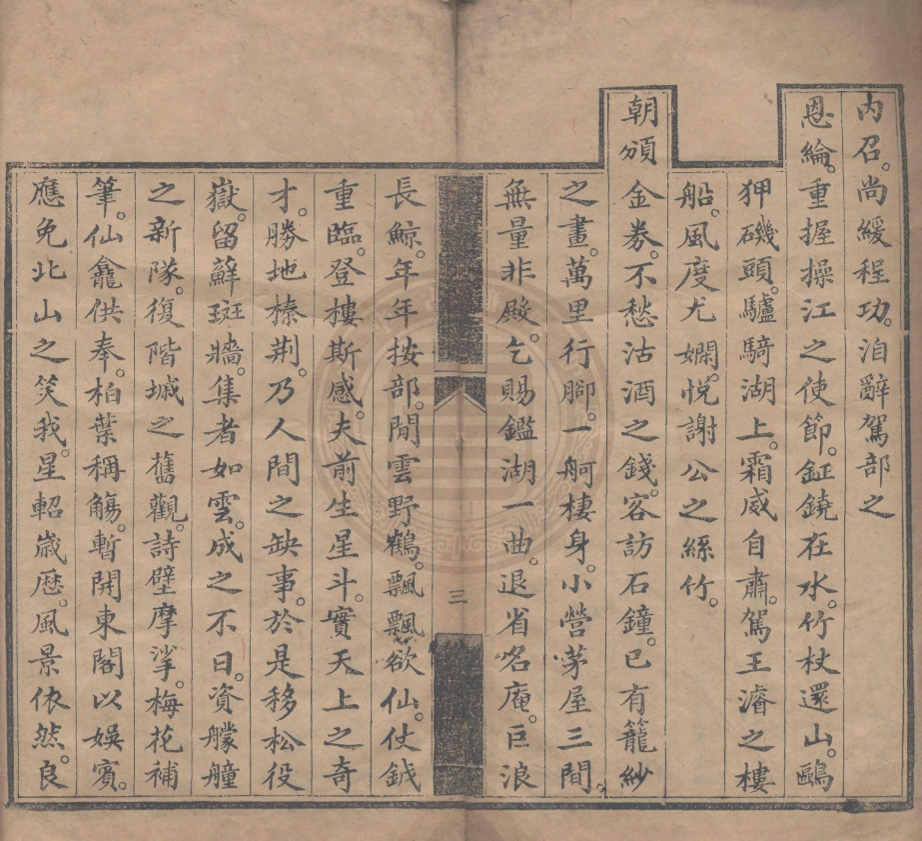 內召。尚緩程功。洎辭駕部之
恩綸。重握操江之使節。鉦鐃在水。竹杖還山。鷗
狎磯頭。驢騎湖上。霜威自肅。駕王濬之樓
船。風度尤嫻。悅謝公之絲竹。
朝頒金券。不愁沽酒之錢。客訪石鐘。已有籠紗
之畫。萬里行腳。一舸棲身。小營茅屋三間。
無量非殿。乞賜鑑湖一曲。退省名庵。巨浪
三
長鯨。年年按部。閒雲野鶴。飄飄欲仙。仗鉞
重臨。登樓斯感。夫前生星斗。實天上之奇
才。勝地榛荆。乃人間之缺事。於是移松役
嶽。留蘚斑牆。集者如雲。成之不日。資艨艟
之新隊。復階墄之舊觀。詩壁摩挲。梅花補
筆。仙龕供奉。柏葉稱觴。暫開東閣以娛賓。
應免北山之笑我。星軺歲歷。風景依然。良